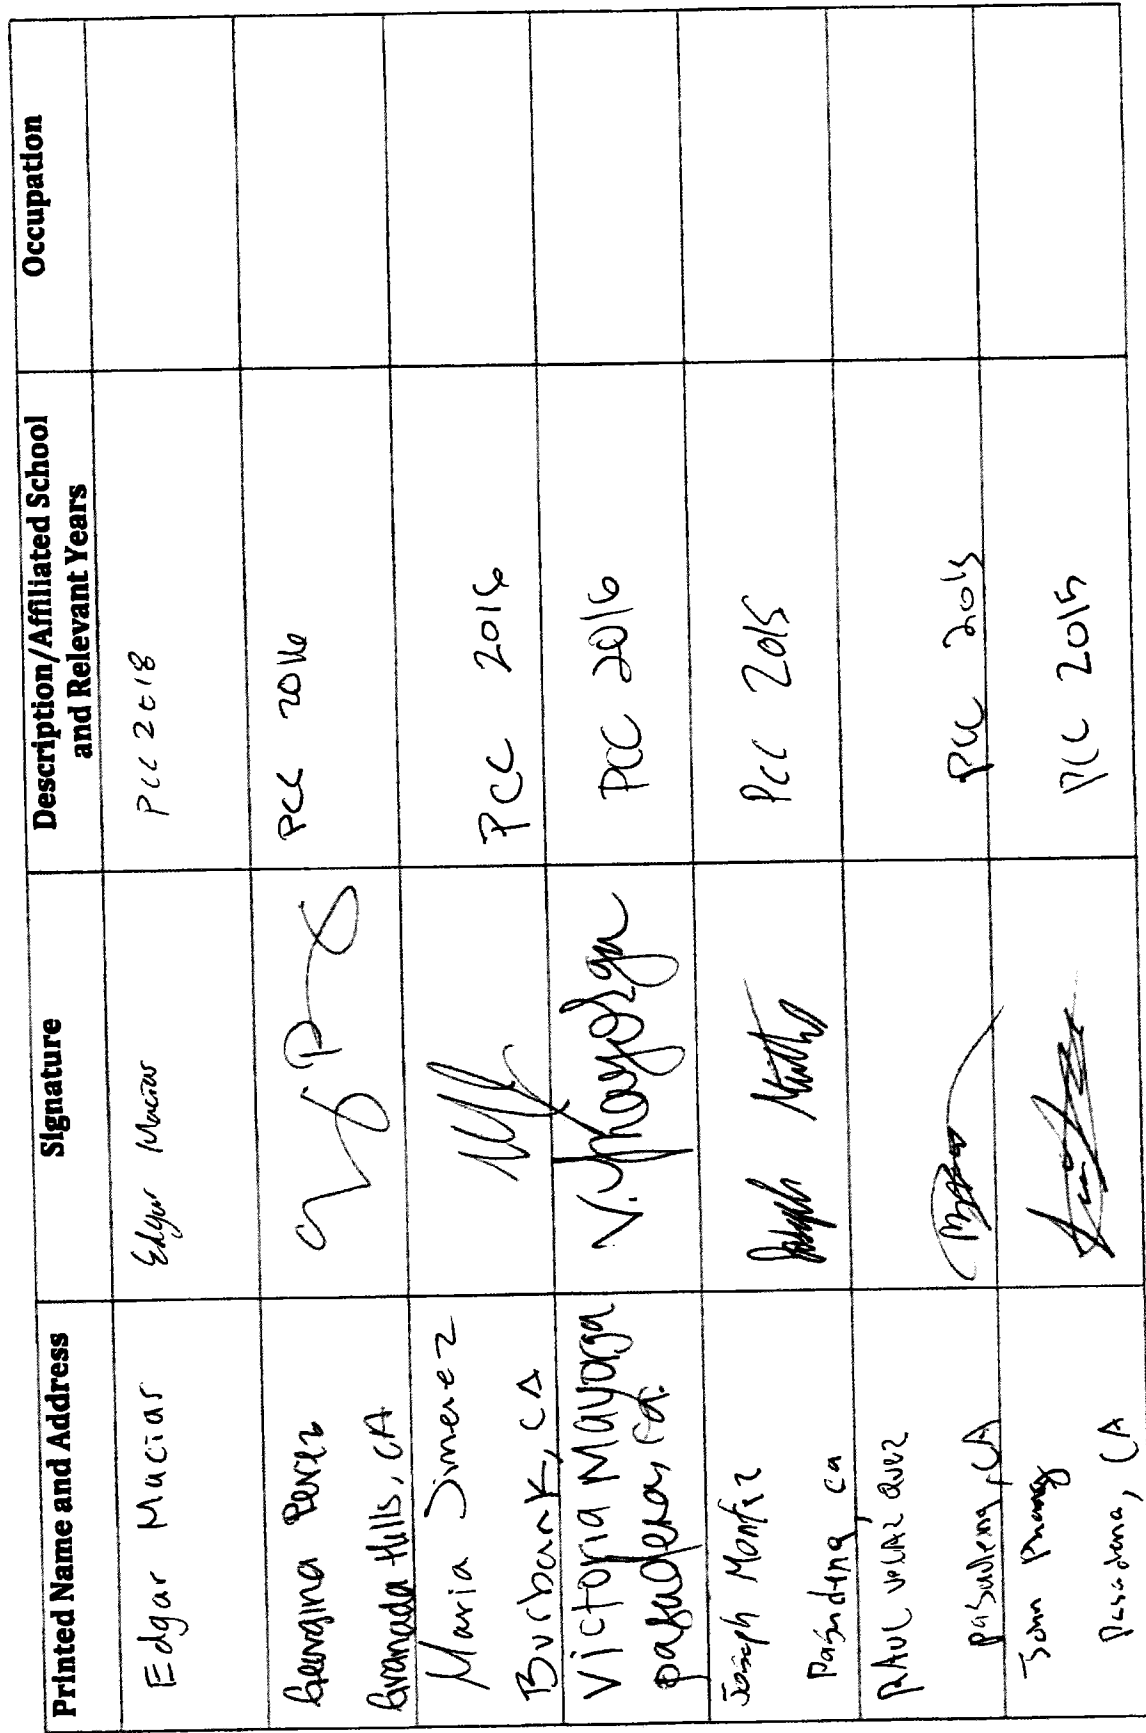 Printed Name and Address
Signature
Description/Affiliated School
and Relevant Years
Occupation
Edgar Macias
Edgar Macias
PCC 2018
Georgina Perez
Granada Hills, CA
PCC 2016
Maria Jimenez
Burbank, CA
PCC 2016
Victoria Mayorga
pasadena, ca.
V. Mayorga
PCC 2016
Joseph
Pasadena, ca
Joseph
PCC 2015
RAUL VELAZQUEZ
Pasadena, CA
PCC 2015
John
Pasadena, CA
PCC 2015